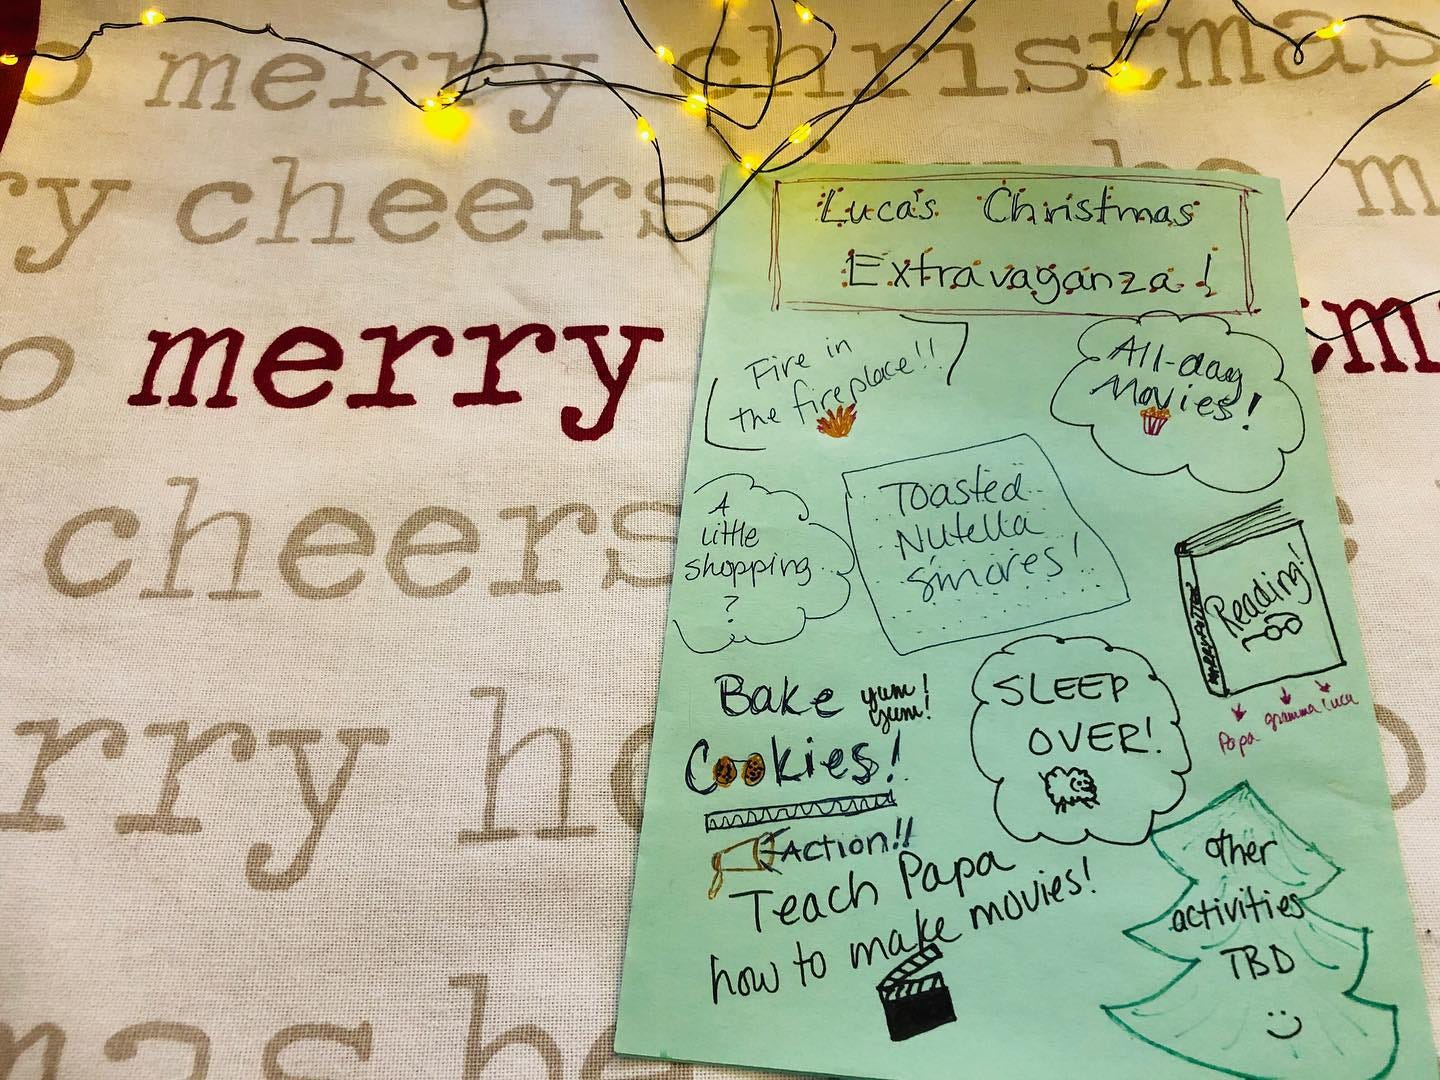 o merry christmas
ry cheers
o merry
cheers
rry ho
mas be
Luca's Christmas
Extravaganza!
Fire in
the fireplace!!
All-day
Movies!
A
little
shopping
?
Toasted
Nutella
s'mores!
Reading!
Papa gramma Luca
Bake yum!
yum!
Cookies!
SLEEP
OVER!
Action!!
Teach Papa
how to make movies!
other
activities
TBD